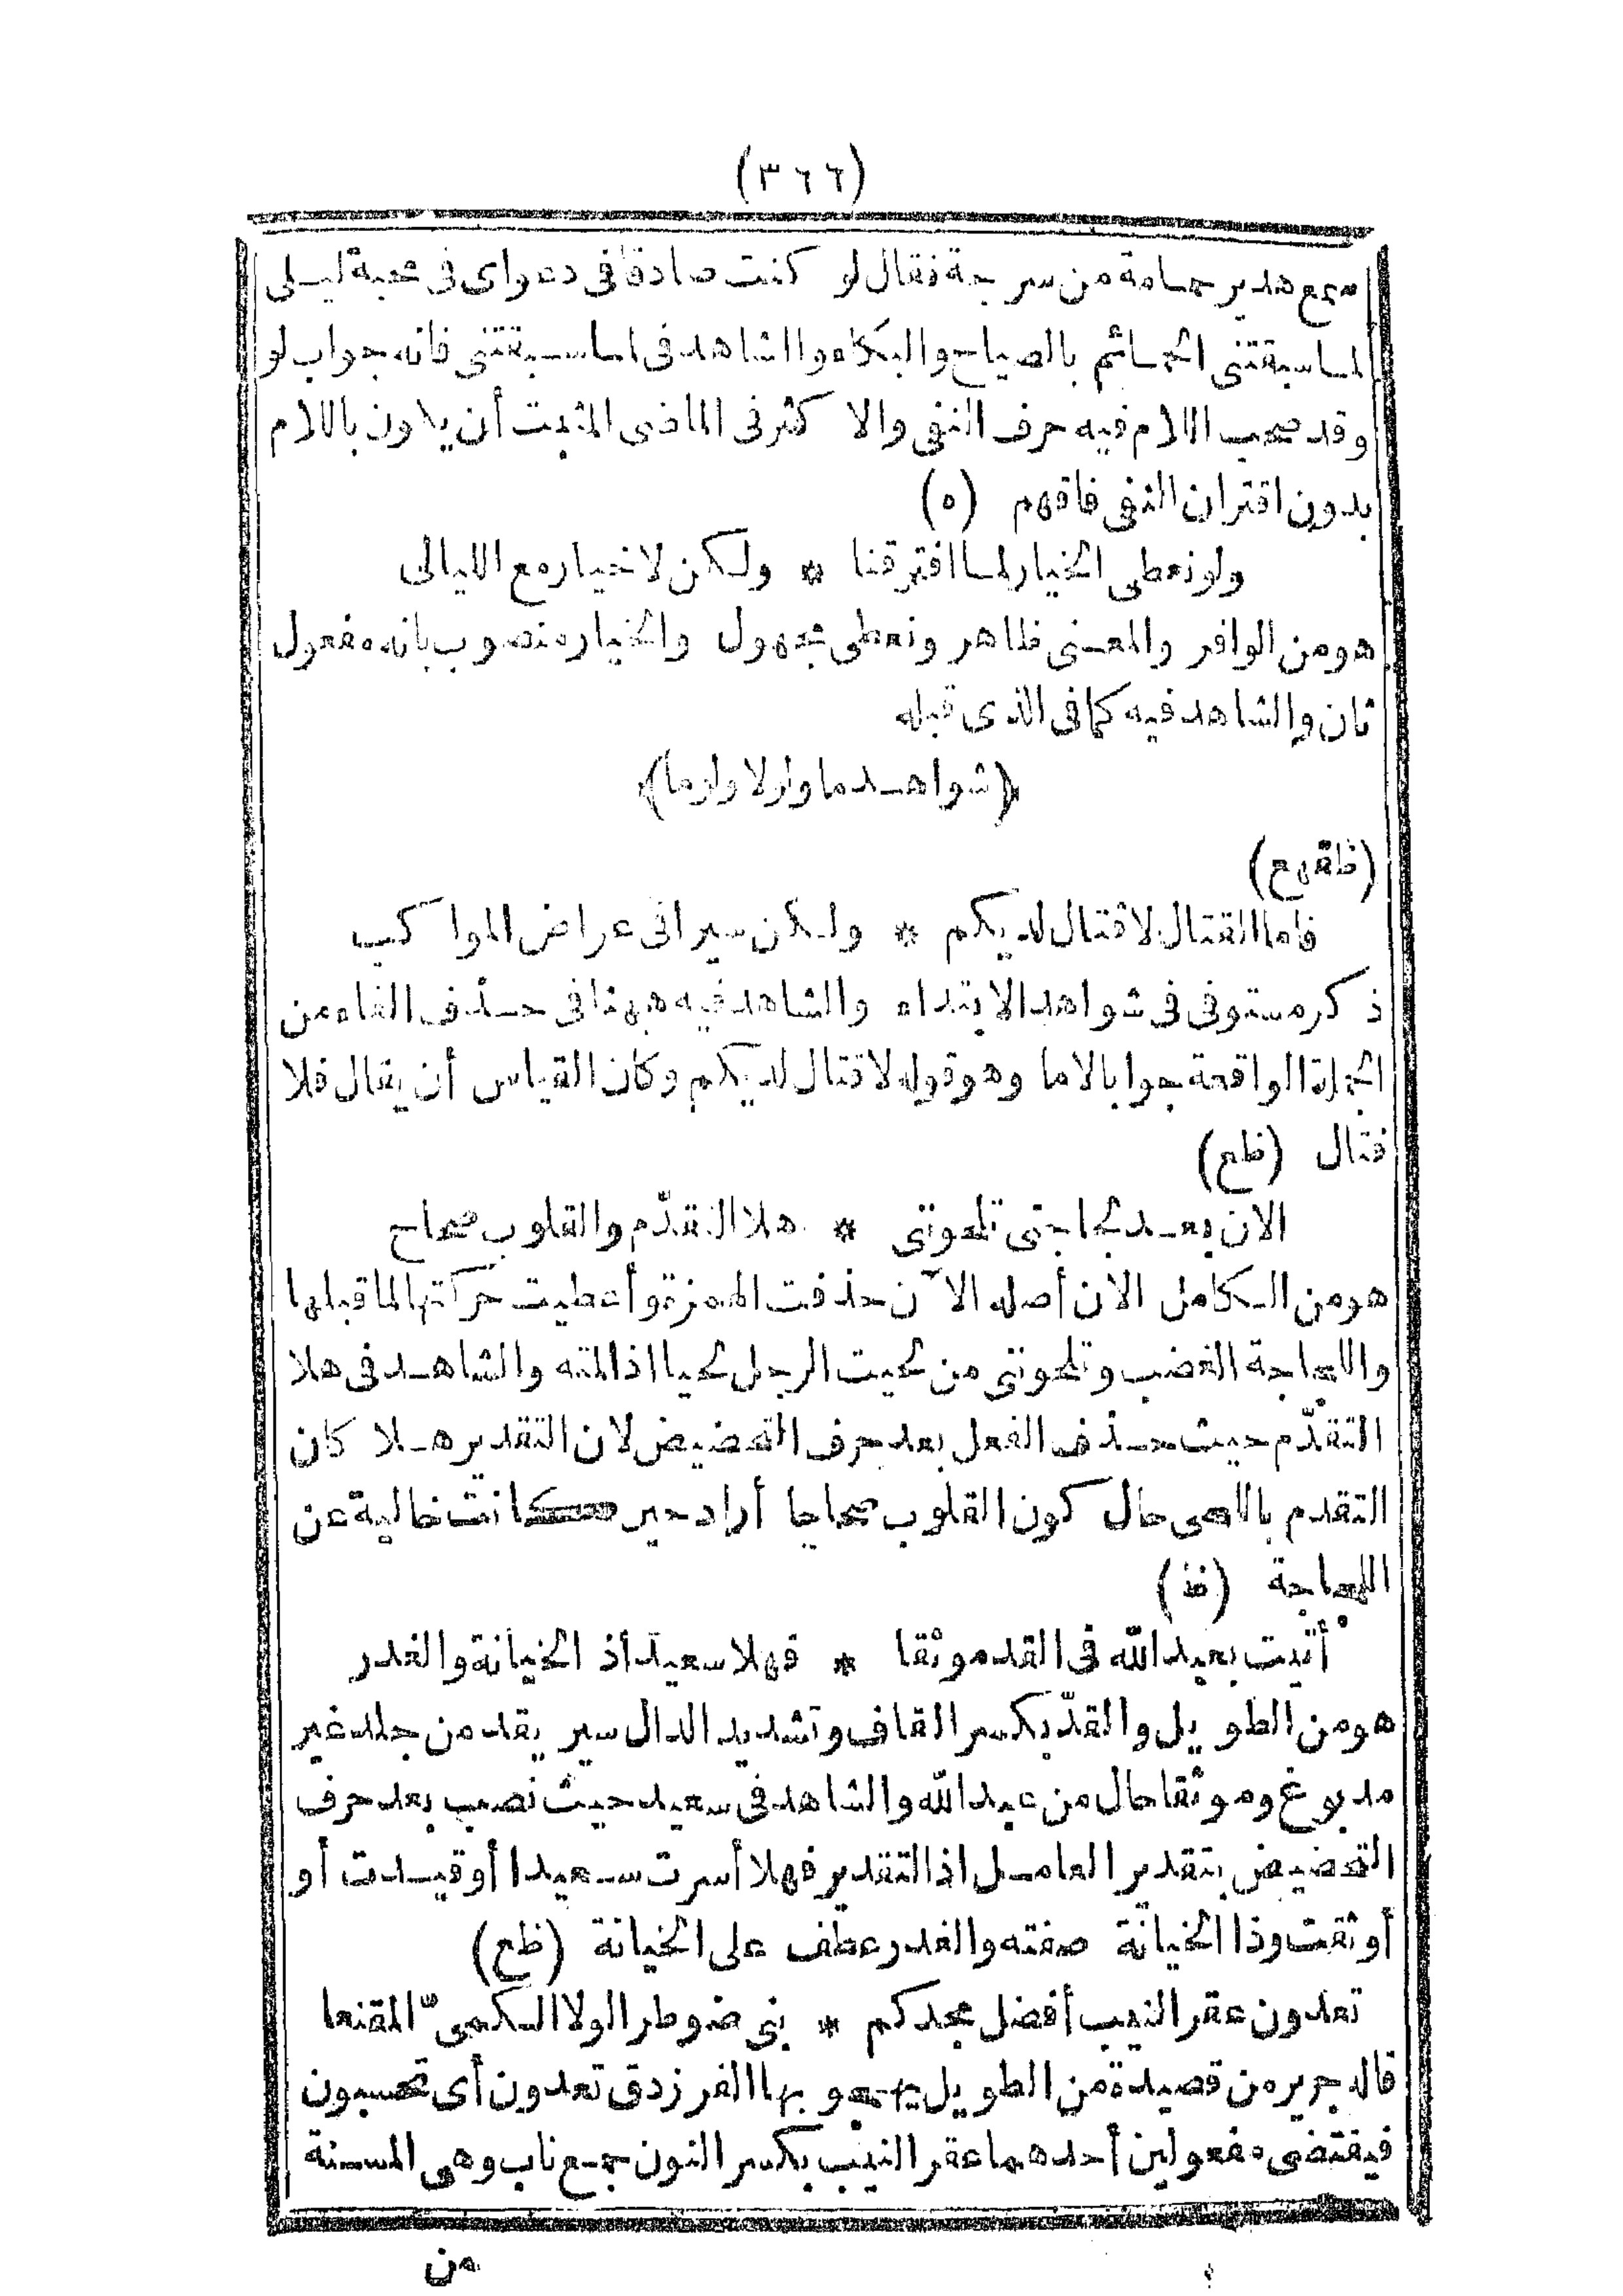 (٣٦٦)
سمع هدير حمامة من سرحة فقال لو كنت صادقا فى دعواى فى محبة ليلى
لما سبقتنى الحمائم بالصياح والبكاء والشاهد فى لما سبقتنى فانه جواب لو
وقد صحب اللام فيه حرف النفى والاكثر فى الماضى المثبت أن يكون باللام
بدون اقتران النفى فافهم (ه)
ولو نعطى الخيار لما افترقنا * ولكن لا خيار مع الليالى
هو من الوافر والمعنى ظاهر ونعطى مجهول والخيار منصوب بانه مفعول
ثان والشاهد فيه كما فى الذى قبله
(شواهد ما ولولا ولوما)
(ظقهع)
فاما القتال لا قتال لديكم * ولكن سيرا فى عراض المواكب
ذكر مستوفى فى شواهد الابتداء والشاهد فيه ههنا فى حذف الفاء من
الجملة الواقعة جوابا لاما وهو قوله لا قتال لديكم وكان القياس أن يقال فلا
قتال (ظع)
الان بعد لجاجتى تلحوننى * هلا التقدّم والقلوب صحاح
هو من الكامل الان أصله الآن حذفت الهمزة وأعطيت حركتها لما قبلها
واللجاجة الغضب وتلحوننى من لحيت الرجل لحيا اذا لمته والشاهد فى هلا
التقدّم حيث حذف الفعل بعد حرف التحضيض لان التقدير هلا كان
التقدم باللحى حال كون القلوب صحاحا أراد حين كانت خالية عن
اللجاجة
أتيت بعبد الله فى القد موثقا * فهلا سعيدا ذا الخيانة والغدر
هو من الطويل والقدّ بكسر القاف وتشديد الدال سير يقد من جلد غير
مدبوغ وموثقا حال من عبد الله والشاهد فى سعيد حيث نصب بعد حرف
التحضيض بتقدير العامل اذ التقدير فهلا أسرت سعيدا أو قيدت أو
أوثقت وذا الخيانة صفته والغدر عطف على الخيانة (ظع)
تعدون عقر النيب أفضل مجدكم * بنى ضوطرا لولا الكمىّ المقنعا
قاله جرير من قصيدة من الطويل يهجو بها الفرزدق تعدون أى تحسبون
فيقتضى مفعولين أحدهما عقر النيب بكسر النون جمع ناب وهى المسنة
من